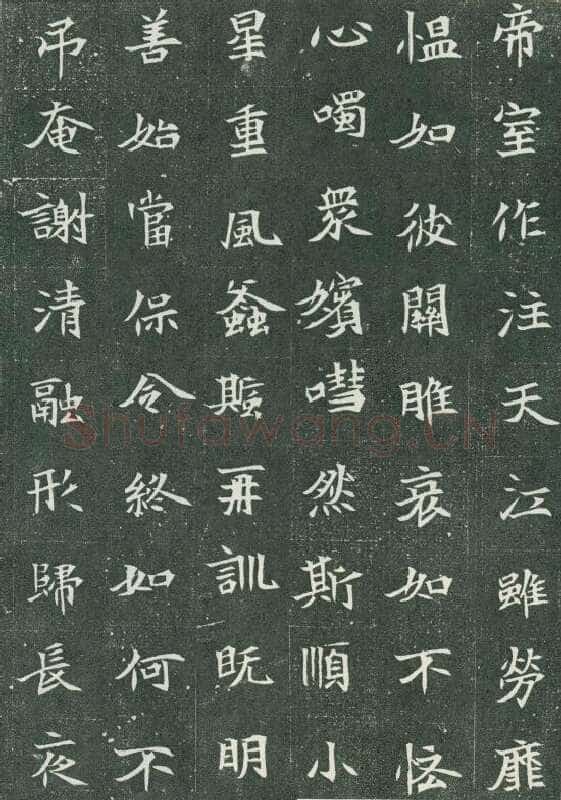 帝室作注天江雖勞靡
愠如彼關雎哀如不
心噣衆嬪嘒然斯順小
星重風螽再訓既明
善始當保令終如何不
弔奄謝清融形歸長夜
Shufawang.CN